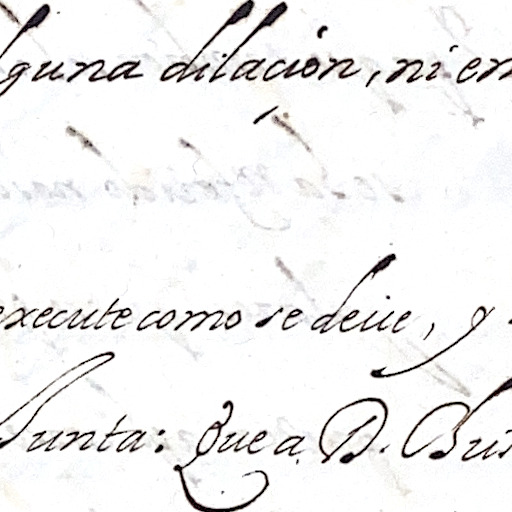 lguna dilacion, ni em
execute como se deue, y
Junta: Que a D. Luis